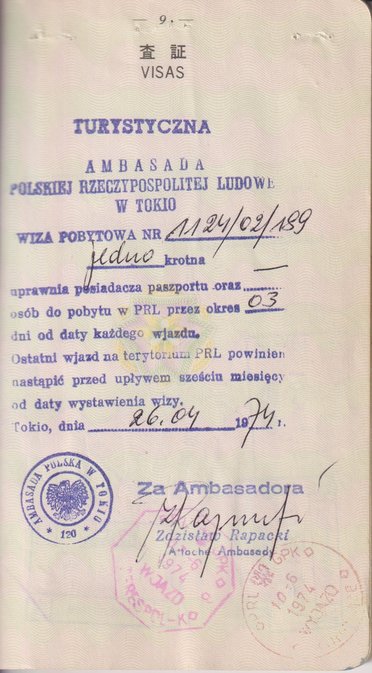 9.
査証
VISAS
TURYSTYCZNA
AMBASADA
POLSKIEJ RZECZYPOSPOLITEJ LUDOWE
W TOKIO
WIZA POBYTOWA NR 1124/02/199
jedno krotna
uprawnia posiadacza paszportu oraz —
osób do pobytu w PRL przez okres 03
dni od daty każdego wjazdu.
Ostatni wjazd na terytorium PRL powinien
nastąpić przed upływem sześciu miesięcy
od daty wystawienia wizy.
Tokio, dnia 26.04 1974 r.
AMBASADA POLSKA W TOKIO
120
Za Ambasadora
Zdzisław Rapacki
Attache Ambasady
1974
WJAZD
10.-6
1974
WYJAZD